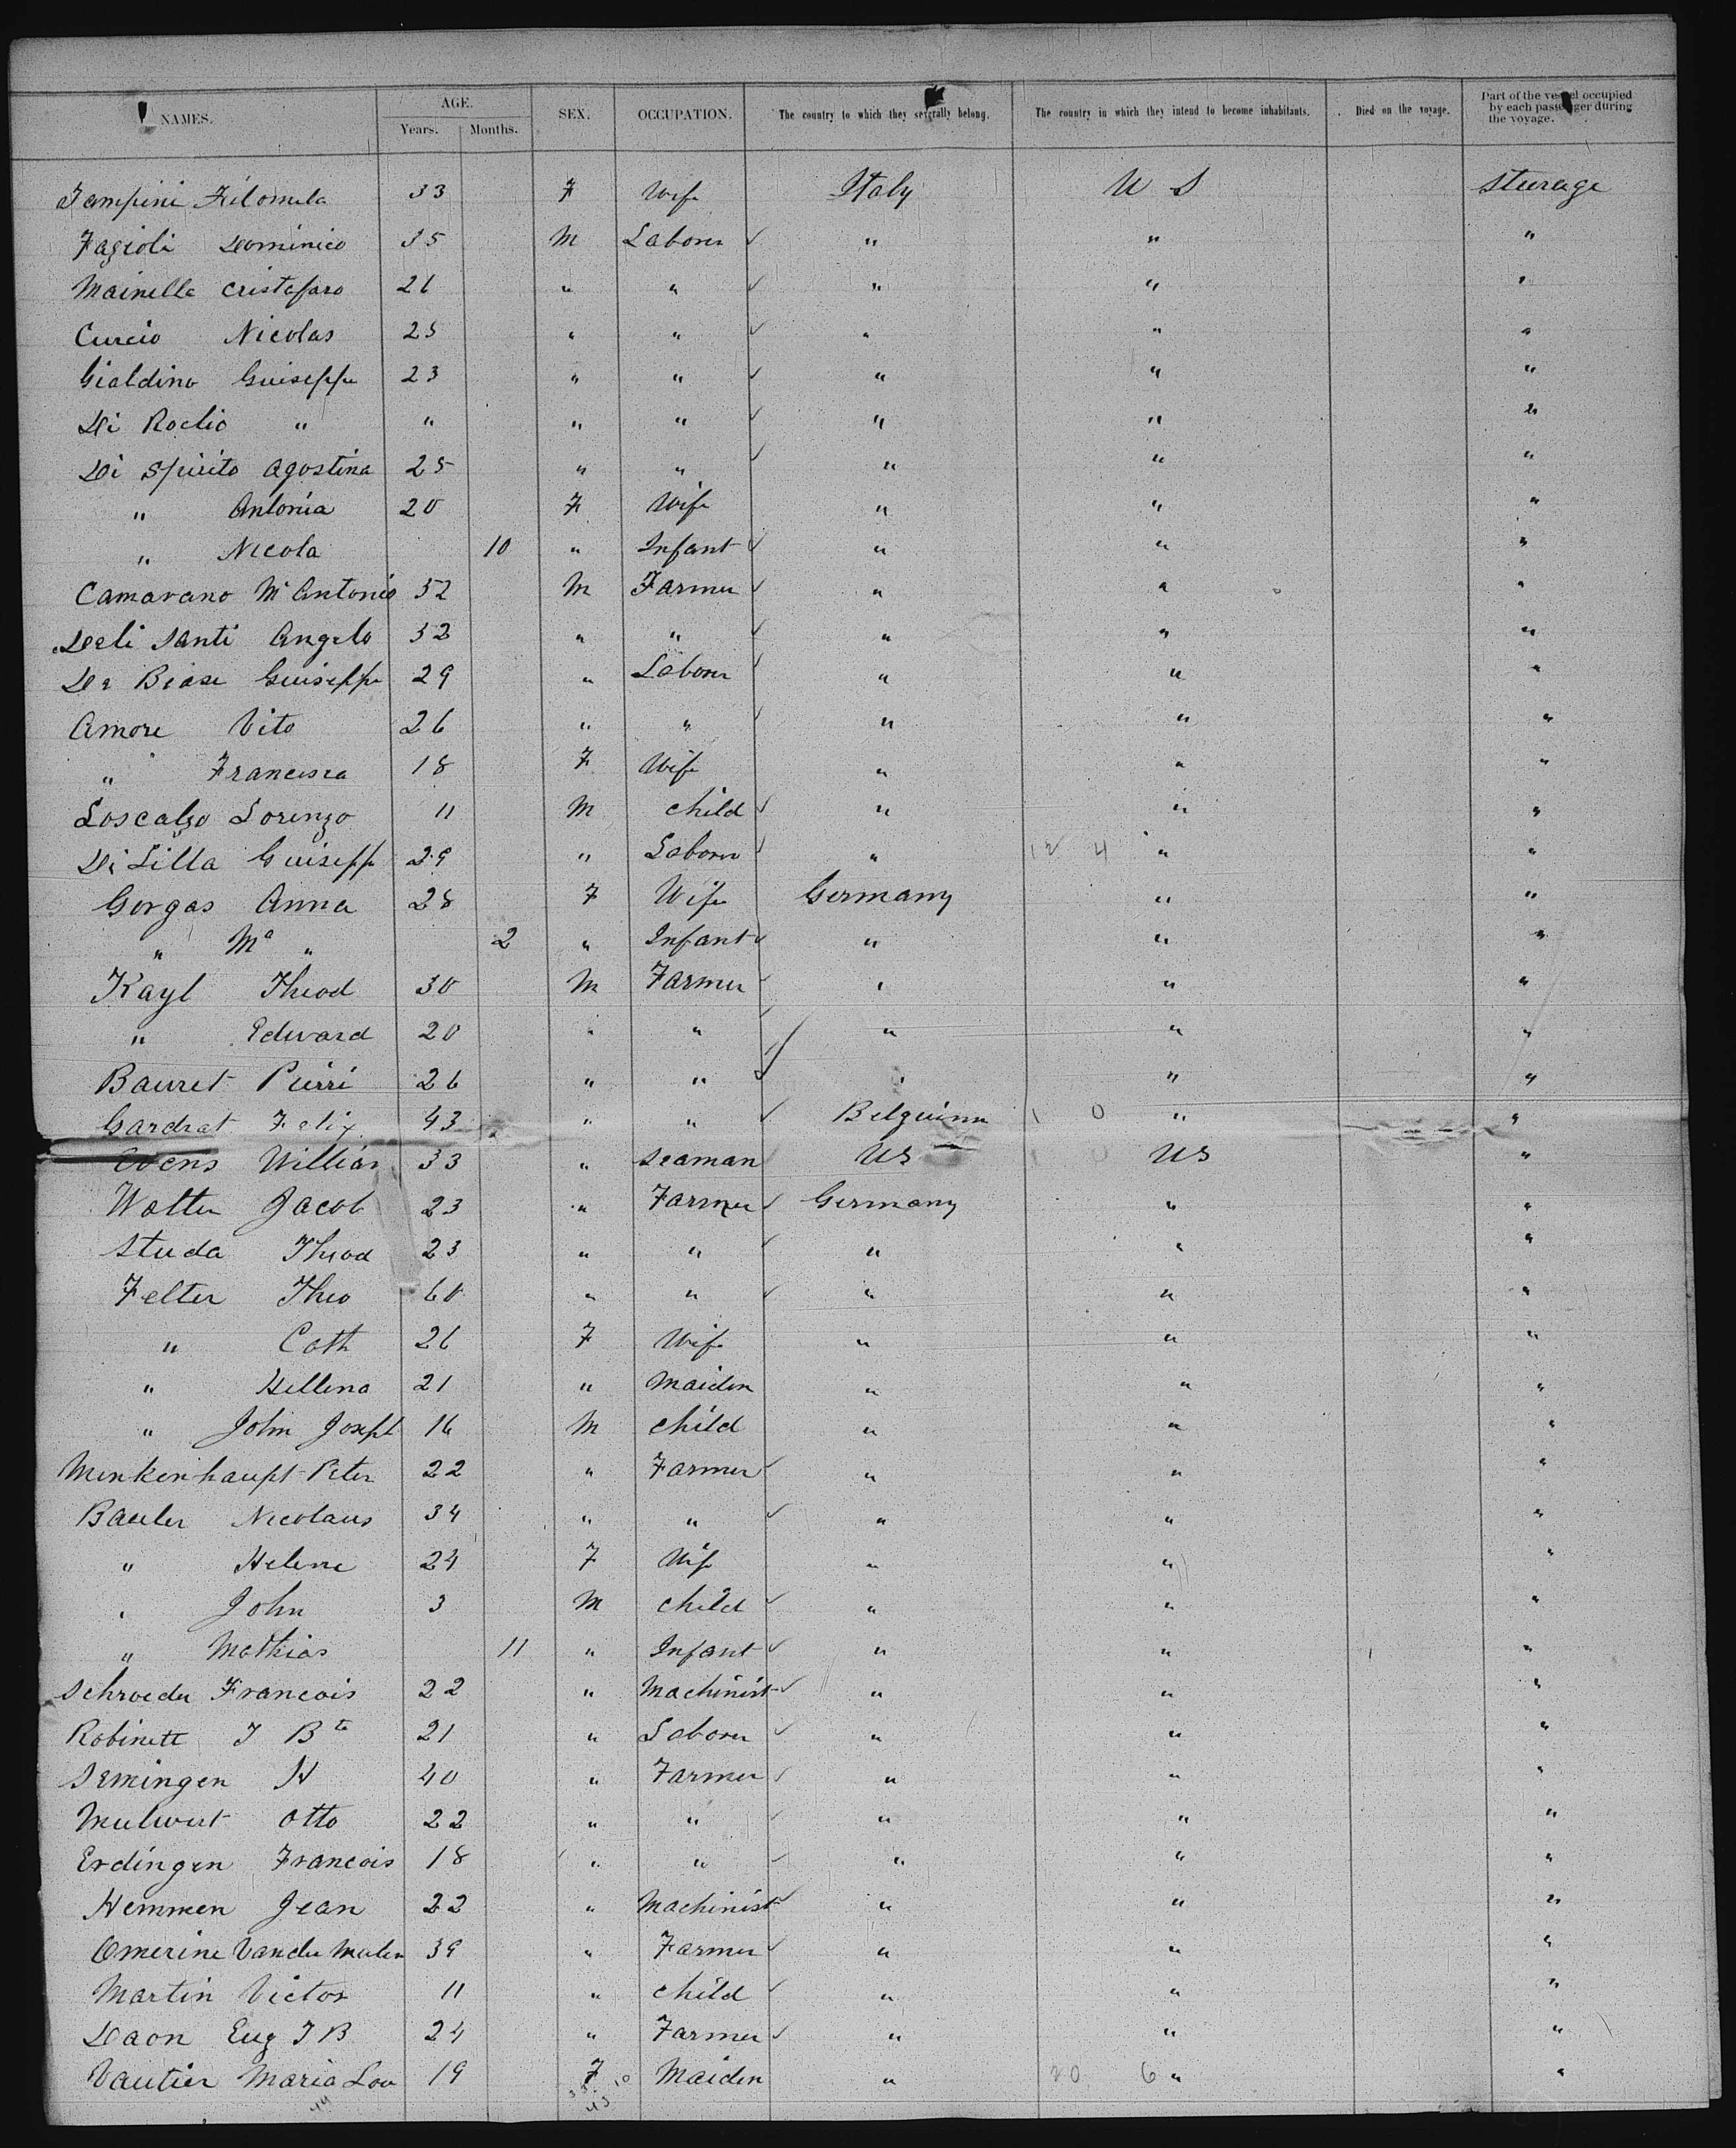 NAMES. AGE. Years. Months. SEX. OCCUPATION. The country to which they severally belong. The country in which they intend to become inhabitants. Died on the voyage. Part of the vessel occupied by each passenger during the voyage.
Filomela 33 F Wife Italy U S Steerage
Fagioli Dominico 35 M Laborer " " "
Mainella Cristofaro 26 " " " " "
Curcio Nicolas 25 " " " " "
Gialdino Guiseppe 23 " " " " "
Di Roclio " " " " " " "
Di Spirito Agostina 25 " " " " "
" Antonia 20 F Wife " " "
" Nicola 10 " Infant " " "
Camarano M Antonio 52 M Farmer " " "
Deli Santi Angelo 32 " " " " "
De Biase Guiseppe 29 " Laborer " " "
Amore Vito 26 " " " " "
" Francisca 18 F Wife " " "
Loscalzo Lorenzo 11 M Child " " "
Di Lilla Guisepp 29 " Laborer " 12 4 " "
Gorgas Anna 28 F Wife Germany " "
" Ma " 2 " Infant " " "
Kayl Theod 30 M Farmer " " "
" Edward 20 " " " " "
Bauret Pierri 26 " " " " "
Gardrat Felix 43 " " Belguinm 1 0 " "
Evens William 33 " Seaman US US "
Walter Jacob 23 " Farmer Germany " "
Studa Theod 23 " " " " "
Felter Theo 60 " " " " "
" Cath 26 F Wife " " "
" Hellena 21 " Maiden " " "
" John Joseph 16 M Child " " "
Menkenhaupt Peter 22 " Farmer " " "
Bauler Nicolaus 34 " " " " "
" Helene 24 F Wife " " "
" John 3 M Child " " "
" Mathias 11 " Infant " " "
Schroeder Francois 22 " Machinist " " "
Robinett J Bte 21 " Laborer " " "
Semingen H 40 " Farmer " " "
Otto 22 " " " " "
Erdingen Francois 18 " " " " "
Hemmen Jean 22 " Machinist " " "
Omerine Vander Mulen 39 " Farmer " " "
Martin Victor 11 " Child " " "
Daon Eug J B 24 " Farmer " " "
Vautier Maria Lou 19 F Maiden " 20 6 " "
44 33 10
43